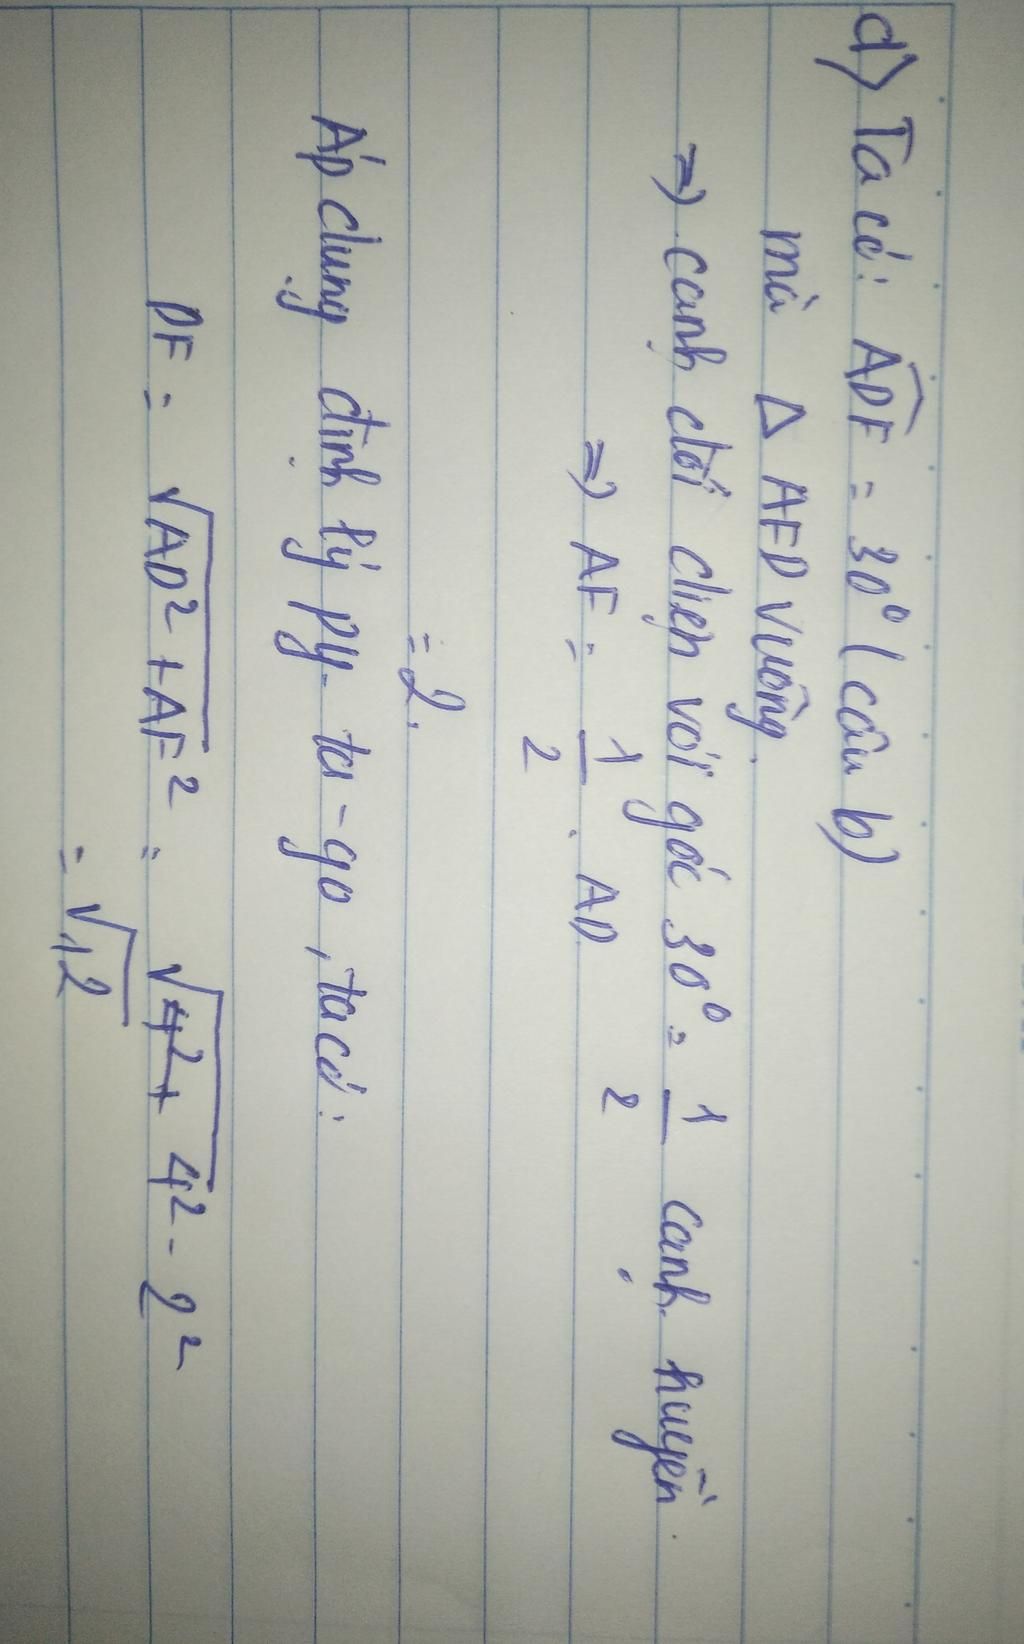 d) Ta có: ADF = 30° (câu b)
mà Δ AFD vuông.
=> cạnh đối diện với góc 30° = 1/2 cạnh huyền.
=> AF = 1/2 . AD
= 2.
Áp dụng định lý py-ta-go, ta có:
DF = √AD² + AF² = √4² + 4² - 2²
= √12